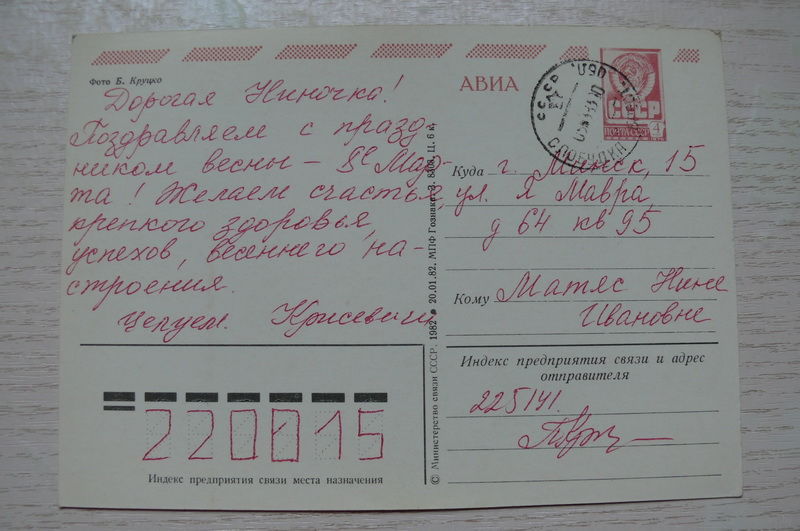 Фото Б. Круцко
Дорогая Ниночка!
Поздравляем с празд-
ником весны – 8е Мар-
та! Желаем счастья,
крепкого здоровья,
успехов, весеннего на-
строения.
Целуем. Крисевичи
220015
Индекс предприятия связи места назначения
© Министерство связи СССР. 1982. 20.01.82. МПФ Гознака. З. Ц. 6 к.
АВИА
СССР
ПОЧТА СССР
4к
СССР
СЛОБУДКА
Куда г. Минск, 15
ул. Я Мавра,
д 64 кв 95
Кому Матяс Нине
Ивановне
Индекс предприятия связи и адрес
отправителя
225141.